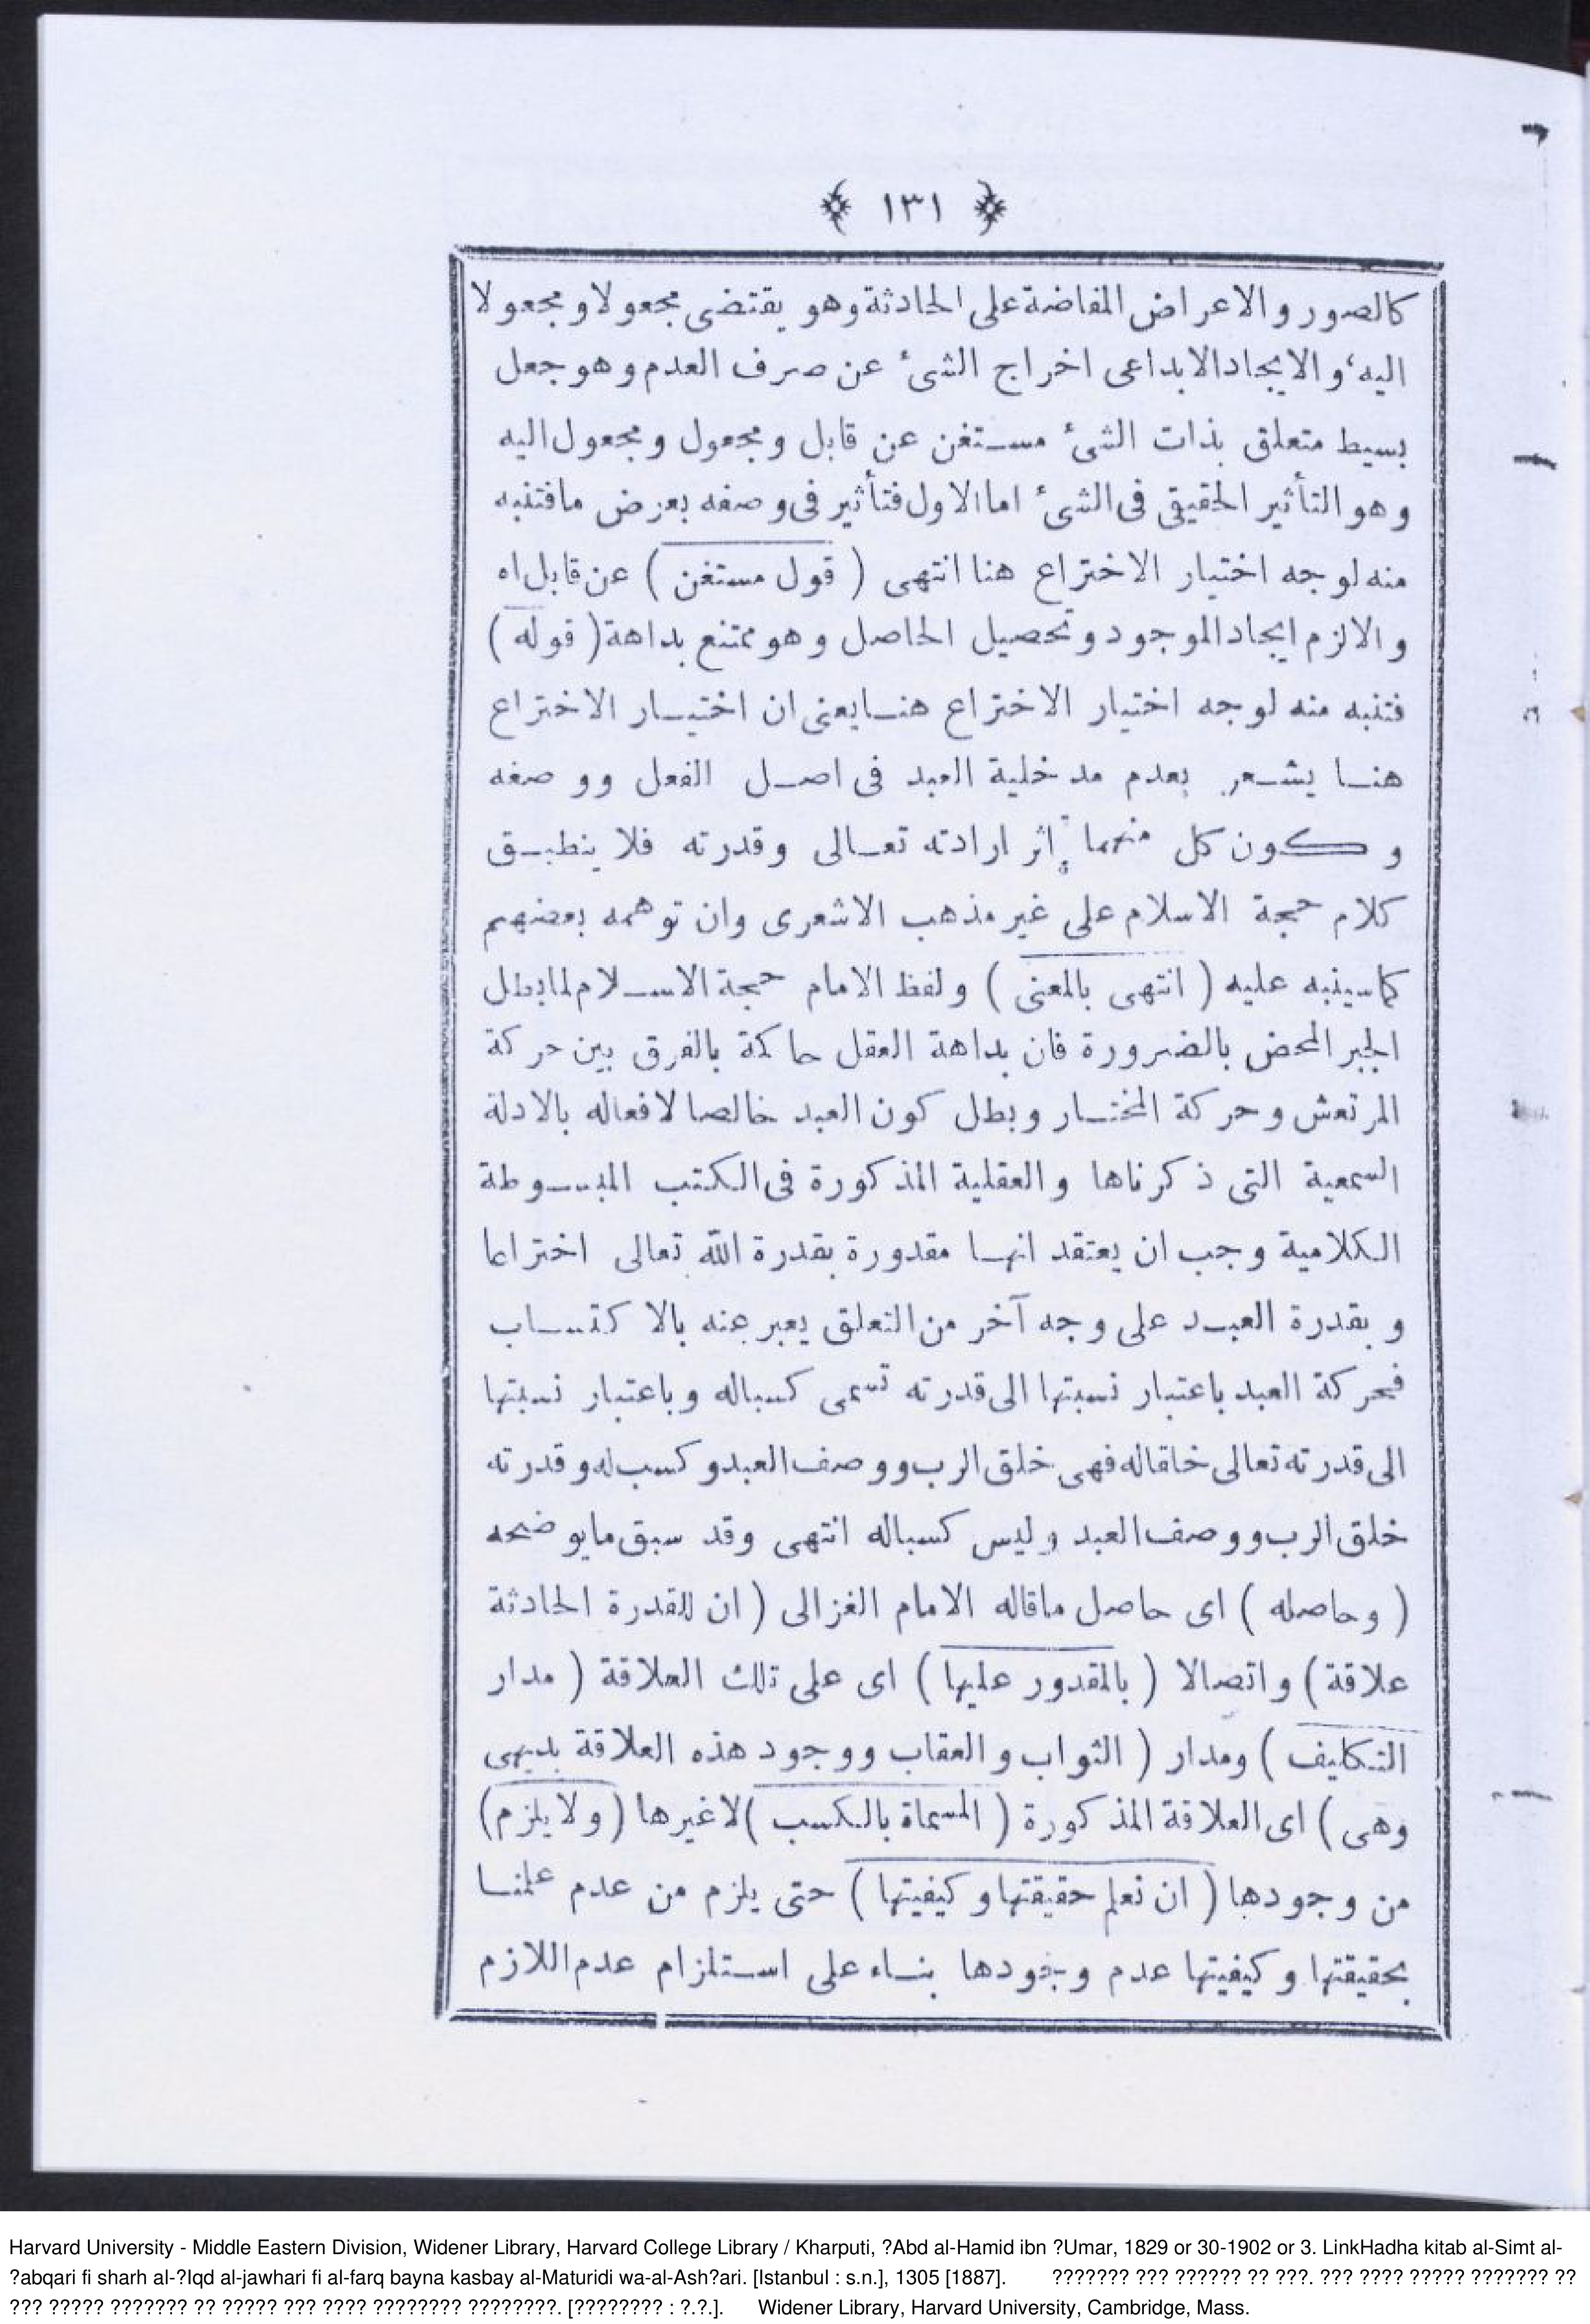 ﴿ ١٣١ ﴾
كالصور والاعراض المفاضة على الحادثة وهو يقتضى مجعولا ومجعولا
اليه، والايجاد الابداعى اخراج الشئ عن صرف العدم وهو جعل
بسيط متعلق بذات الشئ مستغن عن قابل ومجعول ومجعول اليه
وهو التأثير الحقيقى فى الشئ اما الاول فتأثير فى وصفه بعرض ما فتنبه
منه لوجه اختيار الاختراع هنا انتهى ( قول مستغن ) عن قابل اه
والا لزم ايجاد الموجود وتحصيل الحاصل وهو ممتنع بداهة ( قوله )
فتنبه منه لوجه اختيار الاختراع هنا يعنى ان اختيار الاختراع
هنا يشعر بعدم مدخلية العبد فى اصل الفعل ووصفه
وكون كل منهما اثر ارادته تعالى وقدرته فلا ينطبق
كلام حجة الاسلام على غير مذهب الاشعرى وان توهمه بعضهم
كما سينبه عليه ( انتهى بالمعنى ) ولفظ الامام حجة الاسلام لما بطل
الجبر المحض بالضرورة فان بداهة العقل حاكمة بالفرق بين حركة
المرتعش وحركة المختار وبطل كون العبد خالصا لافعاله بالادلة
السمعية التى ذكرناها والعقلية المذكورة فى الكتب المبسوطة
الكلامية وجب ان يعتقد انها مقدورة بقدرة الله تعالى اختراعا
وبقدرة العبد على وجه آخر من التعلق يعبر عنه بالاكتساب
فحركة العبد باعتبار نسبتها الى قدرته تسمى كسباله وباعتبار نسبتها
الى قدرته تعالى خلقاله فهى خلق الرب ووصف العبد وكسب له وقدرته
خلق الرب ووصف العبد وليس كسباله انتهى وقد سبق ما يوضحه
( وحاصله ) اى حاصل ماقاله الامام الغزالى ( ان للقدرة الحادثة
علاقة ) واتصالا ( بالمقدور عليها ) اى على تلك العلاقة ( مدار
التكليف ) ومدار ( الثواب والعقاب ووجود هذه العلاقة بديهى
وهى ) اى العلاقة المذكورة ( المسماة بالكسب ) لاغيرها ( ولا يلزم )
من وجودها ( ان نعلم حقيقتها وكيفيتها ) حتى يلزم من عدم علمنا
بحقيقتها وكيفيتها عدم وجودها بناء على استلزام عدم اللازم
Harvard University - Middle Eastern Division, Widener Library, Harvard College Library / Kharputi, ?Abd al-Hamid ibn ?Umar, 1829 or 30-1902 or 3. LinkHadha kitab al-Simt al-
?abqari fi sharh al-?Iqd al-jawhari fi al-farq bayna kasbay al-Maturidi wa-al-Ash?ari. [Istanbul : s.n.], 1305 [1887]. ??????? ??? ?????? ?? ???. ??? ???? ????? ??????? ??
??? ????? ??????? ?? ????? ??? ???? ???????? ????????. [???????? : ?.?.]. Widener Library, Harvard University, Cambridge, Mass.